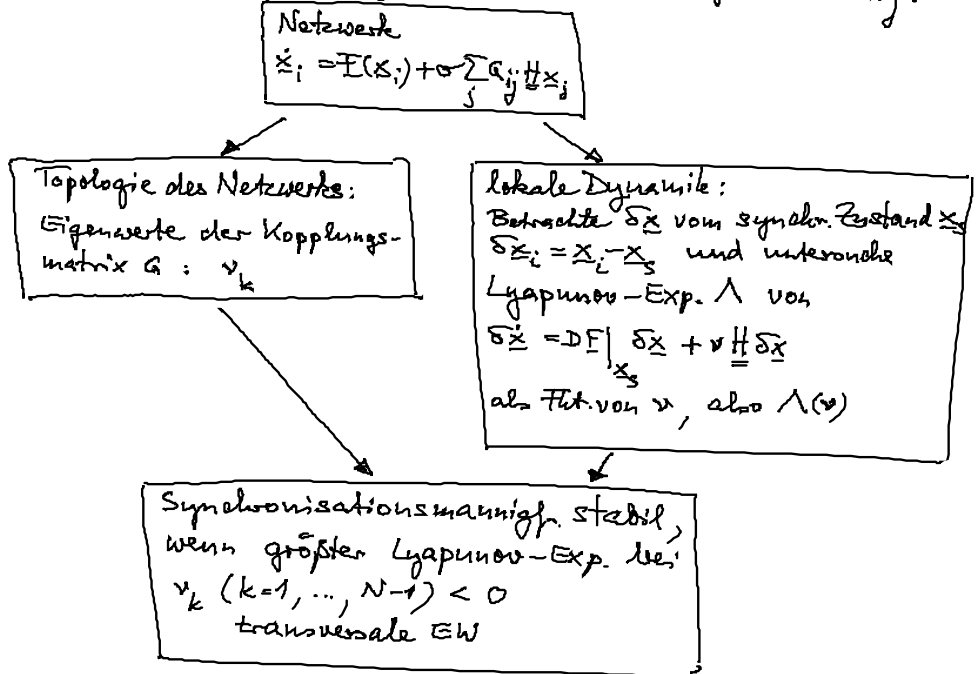 Netzwerk
ẋ_i = F(x_i) + σ ∑_j G_ij H x_j
Topologie des Netzwerks:
Eigenwerte der Kopplungs-
matrix G : ν_k
lokale Dynamik:
Betrachte δx vom synchr. Zustand x_s
δx_i = x_i - x_s und untersuche
Lyapunov-Exp. Λ von
δẋ = DF|_x_s δx + ν H δx
als Fkt. von ν, also Λ(ν)
Synchronisationsmannigf. stabil,
wenn größter Lyapunov-Exp. bei
ν_k (k=1, ..., N-1) < 0
transversale EW